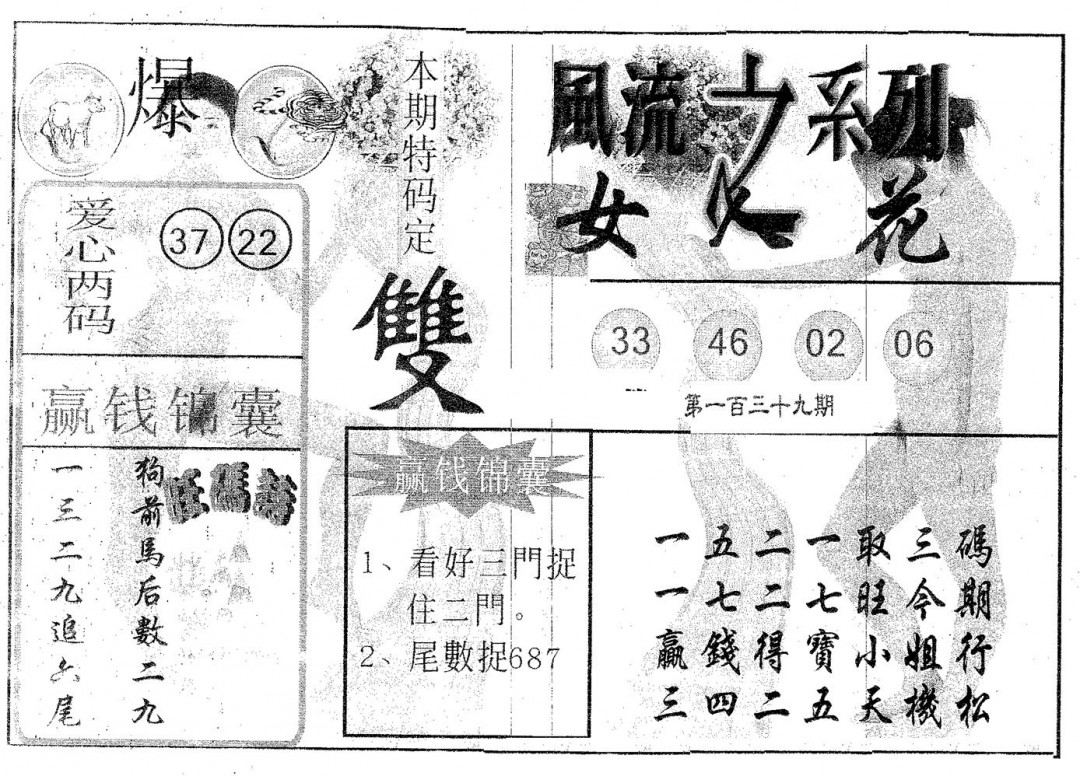 爆
本期特码定
雙
風流之系列
女人花
爱心两码
37 22
赢钱锦囊
狗前馬后數二九
一三二九追六尾
赢钱锦囊
1、看好三門捉
住二門。
2、尾數捉687
33 46 02 06
第一百三十九期
一五二一取三碼
一七二七旺今期
贏錢得寶小姐行
三四二五天機松